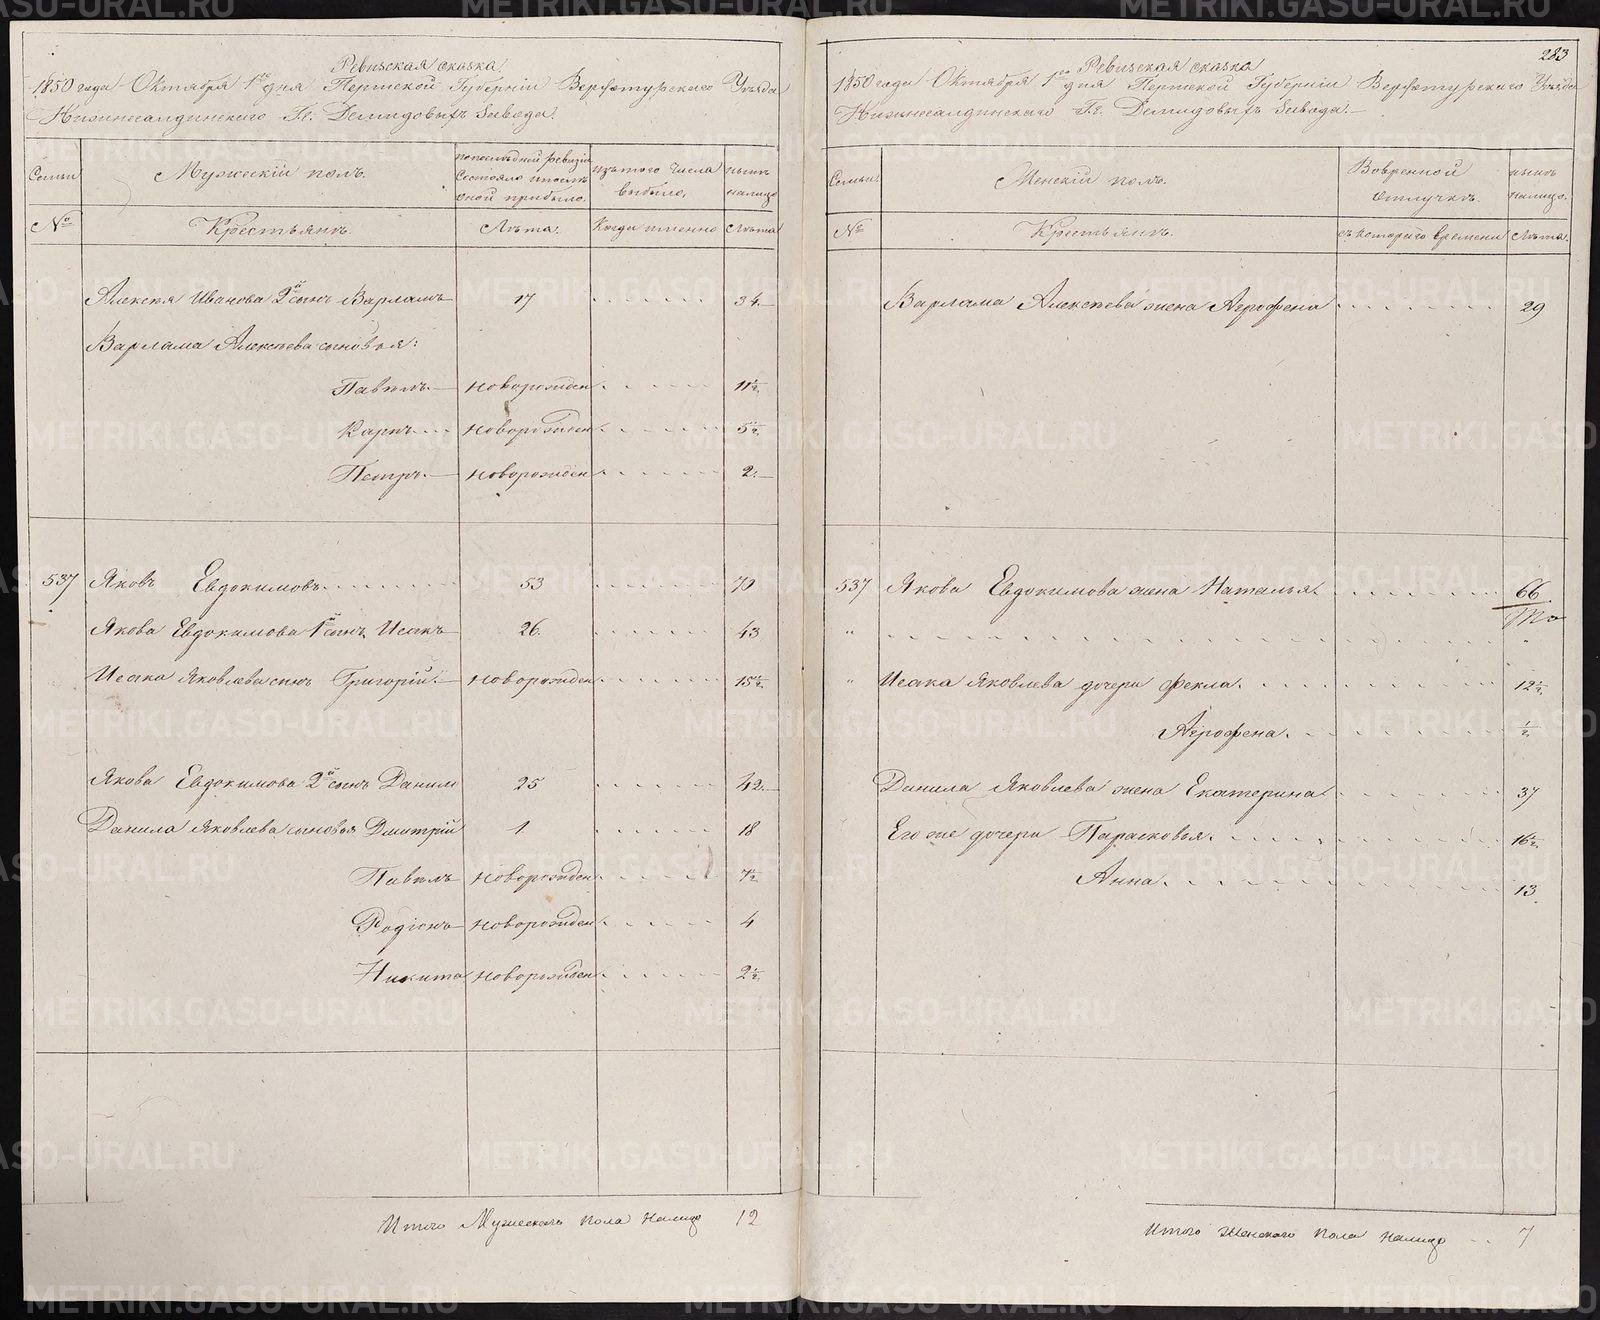 Ревизская сказка
1850 года Октября 1го дня Пермской Губерніи Верхотурскаго Уѣзда
Нижнесалдинскаго Гг. Демидовыхъ завода.
Семьи
Мужескій полъ.
По последней ревизіи
состояло и после
оной прибыло.
Изъ того числа
выбыло,
Нынѣ
налицо
№
Крестьянъ.
Лѣта.
Когда именно
Лѣта
Алексея Иванова 2й сынъ Варламъ 17 34
Варлама Алексѣева сыновья:
Павелъ новорожден 11½
Карпъ новорожден 5½
Петръ новорожден 2
537 Яковъ Евдокимовъ 53 70
Якова Евдокимова 1й сынъ Исакъ 26 43
Исака Яковлева сынъ Григорій новорожден 15½
Якова Евдокимова 2й сынъ Данило 25 42
Данила Яковлева сыновья Дмитрій 1 18
Павелъ новорожден 7½
Родіонъ новорожден 4
Никита новорожден 2½
Итого Мужескаго пола налицо 12
283
Ревизская сказка
1850 года Октября 1го дня Пермской Губерніи Верхотурскаго Уѣзда
Нижнесалдинскаго Гг. Демидовыхъ завода.
Семьи
Женскій полъ.
Во временной
отлучкѣ.
Нынѣ
налицо.
№
Крестьянъ.
съ котораго времени
Лѣта.
Варлама Алексѣева жена Агрофена 29
537 Якова Евдокимова жена Наталья 66
" "
" Исака Яковлева дочери Фекла 12½
Агрофена ½
Данила Яковлева жена Екатерина 37
Его же дочери Парасковья 16½
Анна 13
Итого Женскаго пола налицо 7
METRIKI.GASO-URAL.RU